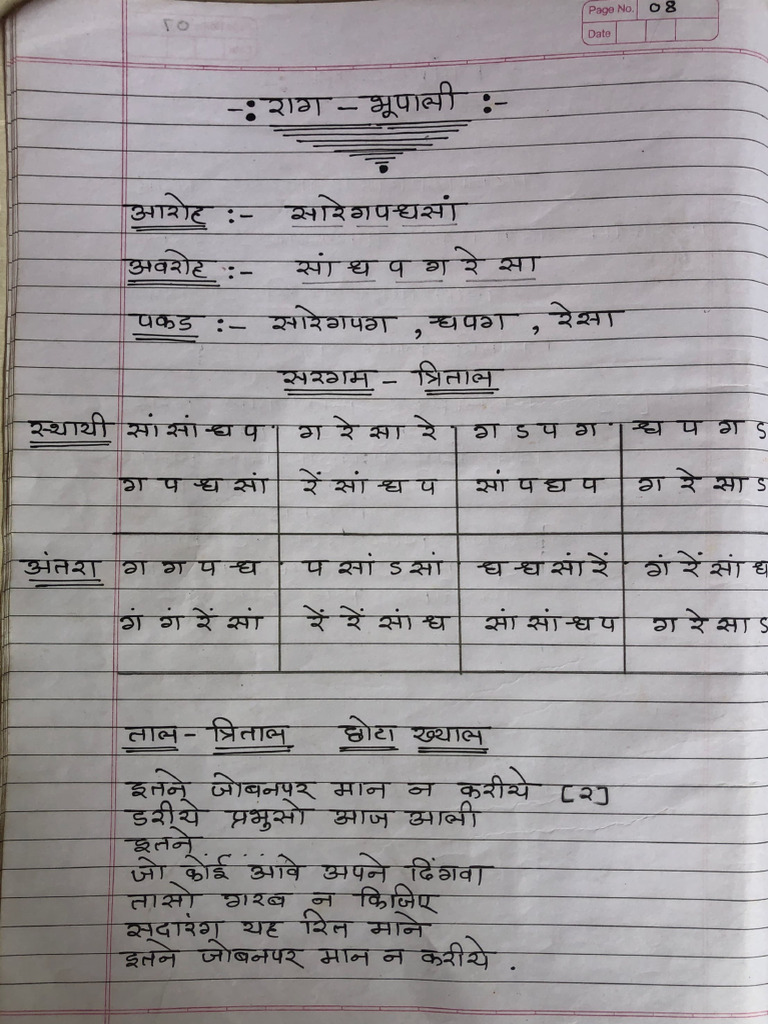 Page No. 08
Date
-: राग - भूपाली :-
आरोह :- सारेगपधसां
अवरोह :- सां ध प ग रे सा
पकड :- सारेगपग , धपग , रेसा
सरगम - त्रिताल
स्थायी सां सां ध प | ग रे सा रे | ग ऽ प ग | ध प ग ऽ
ग प ध सां | रें सां ध प | सां प ध प | ग रे सा ऽ
अंतरा ग ग प ध | प सां ऽ सां | ध ध सां रें | गं रें सां ध
गं गं रें सां | रें रें सां ध | सां सां ध प | ग रे सा ऽ
ताल - त्रिताल छोटा ख्याल
इतने जोबनपर मान न करीये [२]
डरीये प्रभुसो आज आली
इतने
जो कोई आवे अपने ढिंगवा
तासो गरब न किजिए
सदारंग यह रित माने
इतने जोबनपर मान न करीये .